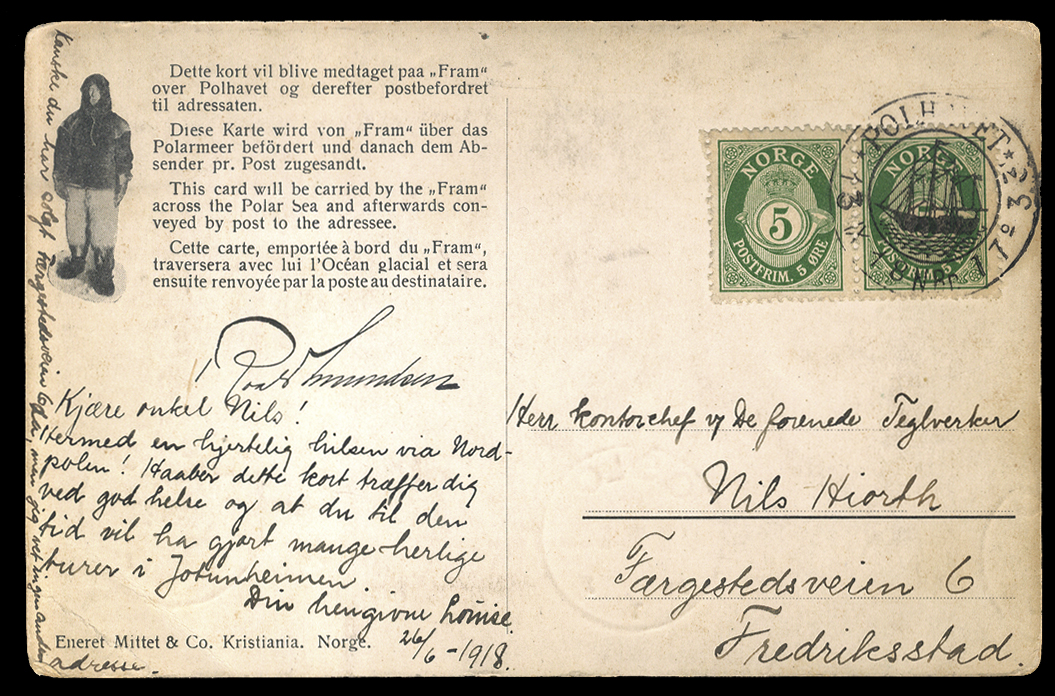 Dette kort vil blive medtaget paa „Fram“
over Polhavet og derefter postbefordret
til adressaten.
Diese Karte wird von „Fram“ über das
Polarmeer befördert und danach dem Ab-
sender pr. Post zugesandt.
This card will be carried by the „Fram“
across the Polar Sea and afterwards con-
veyed by post to the adressee.
Cette carte, emportée à bord du „Fram“,
traversera avec lui l'Océan glacial et sera
ensuite renvoyée par la poste au destinataire.
Roald Amundsen
Kjære onkel Nils!
Hermed en hjertelig hilsen via Nord-
polen! Haaber dette kort træffer dig
ved god helse og at du til den
tid vil ha gjort mange herlige
turer i Jotunheimen
Din hengivne Louise.
26/6-1918.
Eneret Mittet & Co. Kristiania. Norge.
Kanske du har solgt Færgestedsveien 6 da, men jeg vet ingen anden
adresse.
NORGE
5
POSTFRIM. 5 ØRE
NORGE
POLHAVET
Herr kontorchef v/ De forenede Teglverker
Nils Hiorth
Færgestedsveien 6
Fredriksstad.